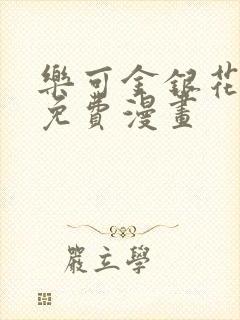 樂可金銀花
免費漫畫
嚴立學